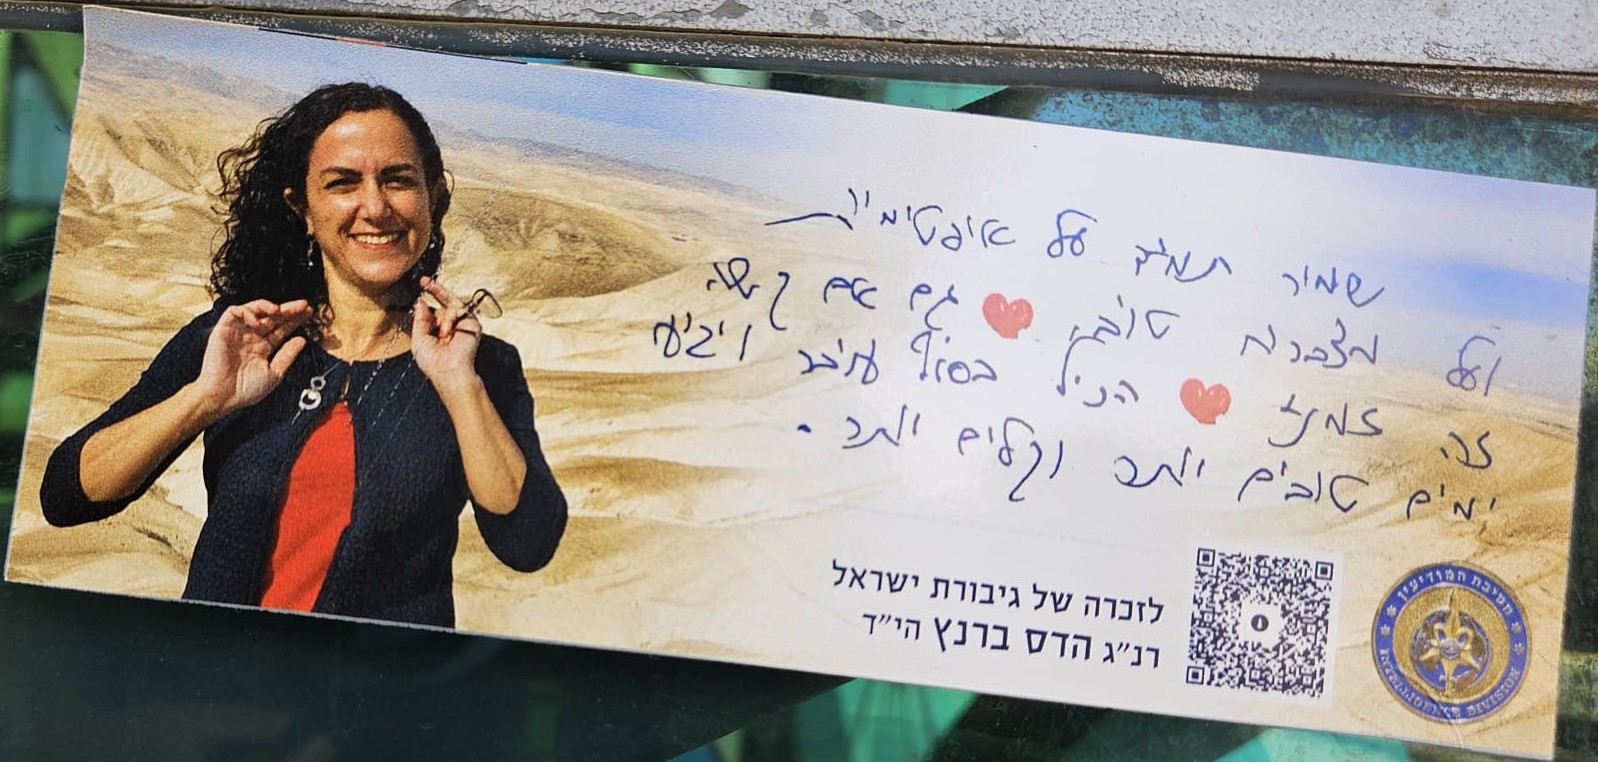 שמור תמיד על אופטימיות
ועל מצברוח טוב. גם אם קשה
זה זמני הכול בסוף עובר ויגיעו
ימים טובים יותר וקלים יותר.
לזכרה של גיבורת ישראל
רנ״ג הדס ברנץ הי״ד
חטיבת המודיעין
INTELLIGENCE DIVISION